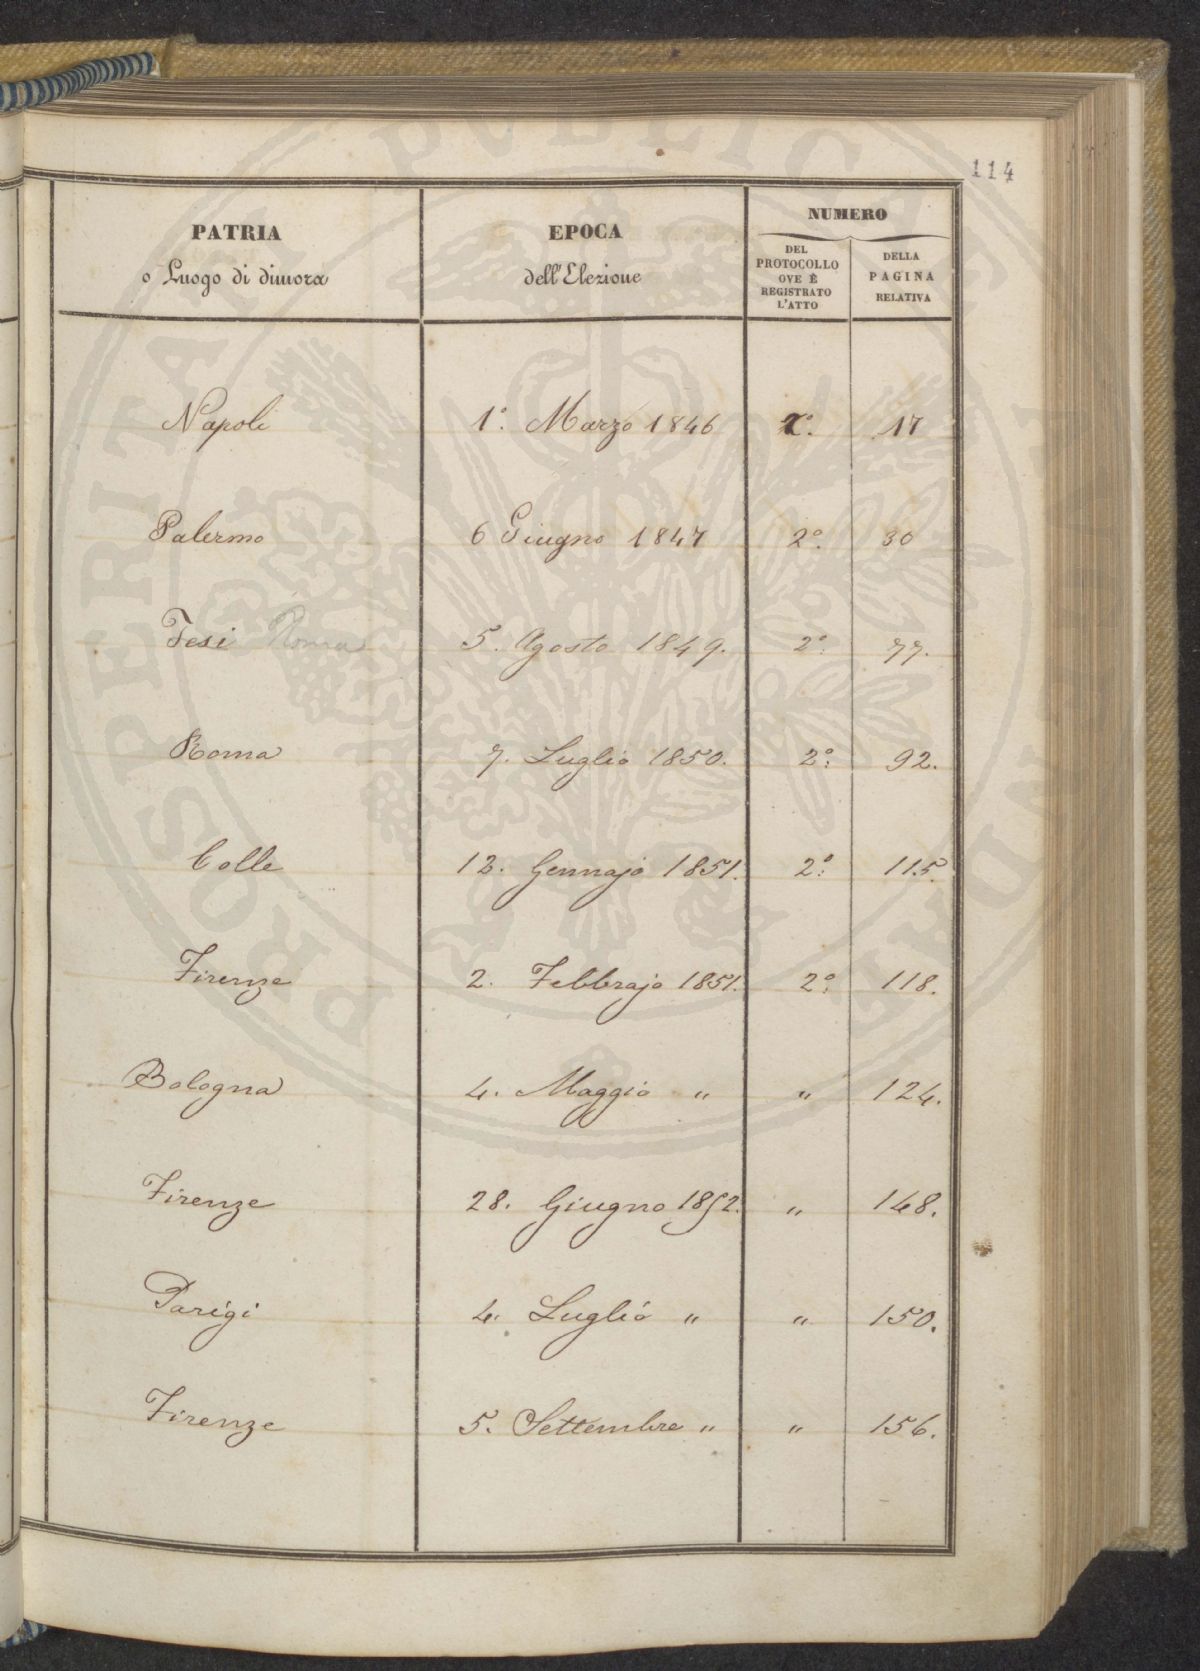 114
PATRIA
o Luogo di dimora
EPOCA
dell'Elezione
NUMERO
DEL
PROTOCOLLO
OVE È
REGISTRATO
L'ATTO
DELLA
PAGINA
RELATIVA
Napoli 1º. Marzo 1846 17
Palermo 6 Giugno 1847 2º. 30
Jesi Roma 5. Agosto 1849. 2º. 77.
Roma 7. Luglio 1850. 2º. 92.
Colle 12. Gennajo 1851. 2º. 115.
Firenze 2. Febbrajo 1851. 2º. 118.
Bologna 4. Maggio " " 124.
Firenze 28. Giugno 1852. " 148.
Parigi 4. Luglio " " 150.
Firenze 5. Settembre " " 156.
PUBLICA
PROSPERITA